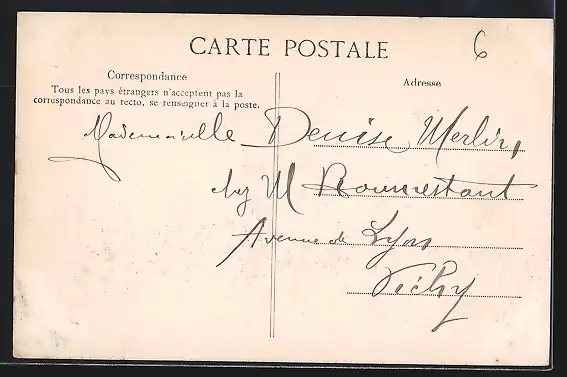 CARTE POSTALE
6
Correspondance
Tous les pays étrangers n'acceptent pas la
correspondance au recto, se renseigner à la poste.
Adresse
Mademoiselle Denise Merlin,
chez M Roumestant
Avenue de Lyon
Vichy